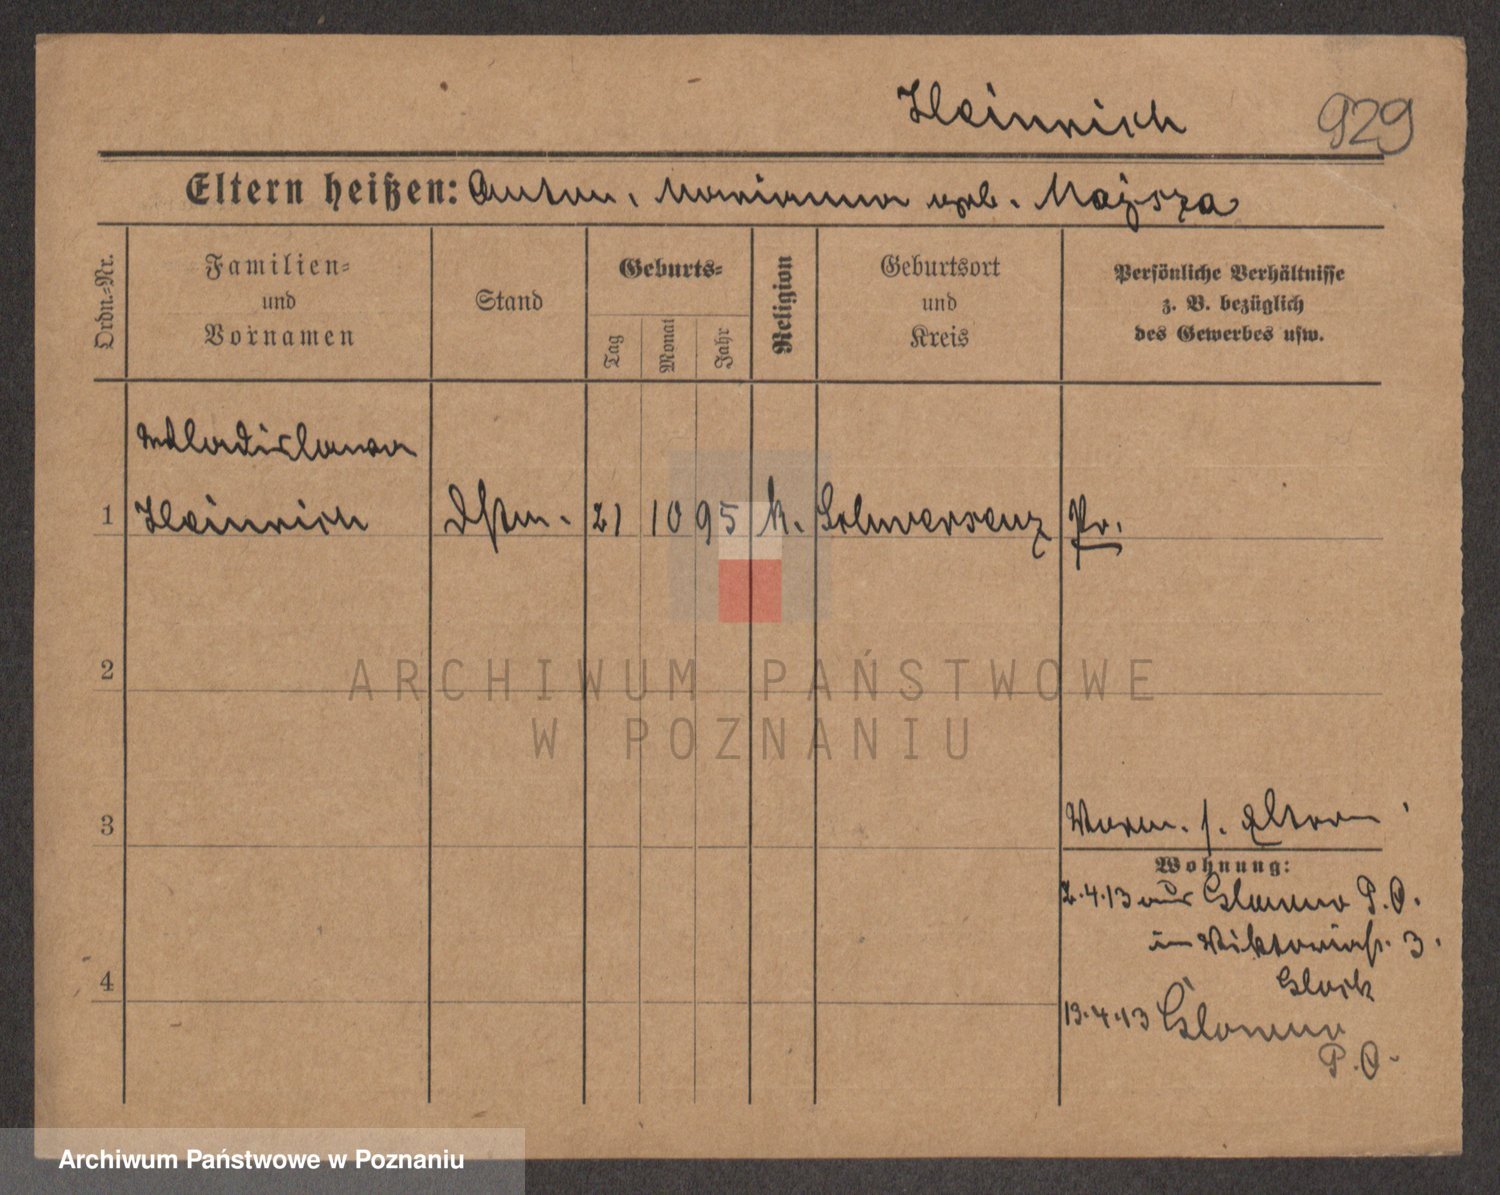 Heinrich 929
Eltern heißen: Anton, Marianna geb. Majsza
Ordn.-Nr.
Familien-
und
Vornamen
Stand
Geburts-
Tag
Monat
Jahr
Religion
Geburtsort
und
Kreis
Persönliche Verhältnisse
z. B. bezüglich
des Gewerbes usw.
Wladislawa
1 Heinrich Dstm. 21 10 95 k. Schwersenz Pr.
2
ARCHIWUM PAŃSTWOWE
W POZNANIU
3
Vorm. s. Eltern
Wohnung:
2.4.13 aus Glowno P.O.
in Viktoriastr. 3.
4
13.4.13 Glowno
P.O.
Archiwum Państwowe w Poznaniu